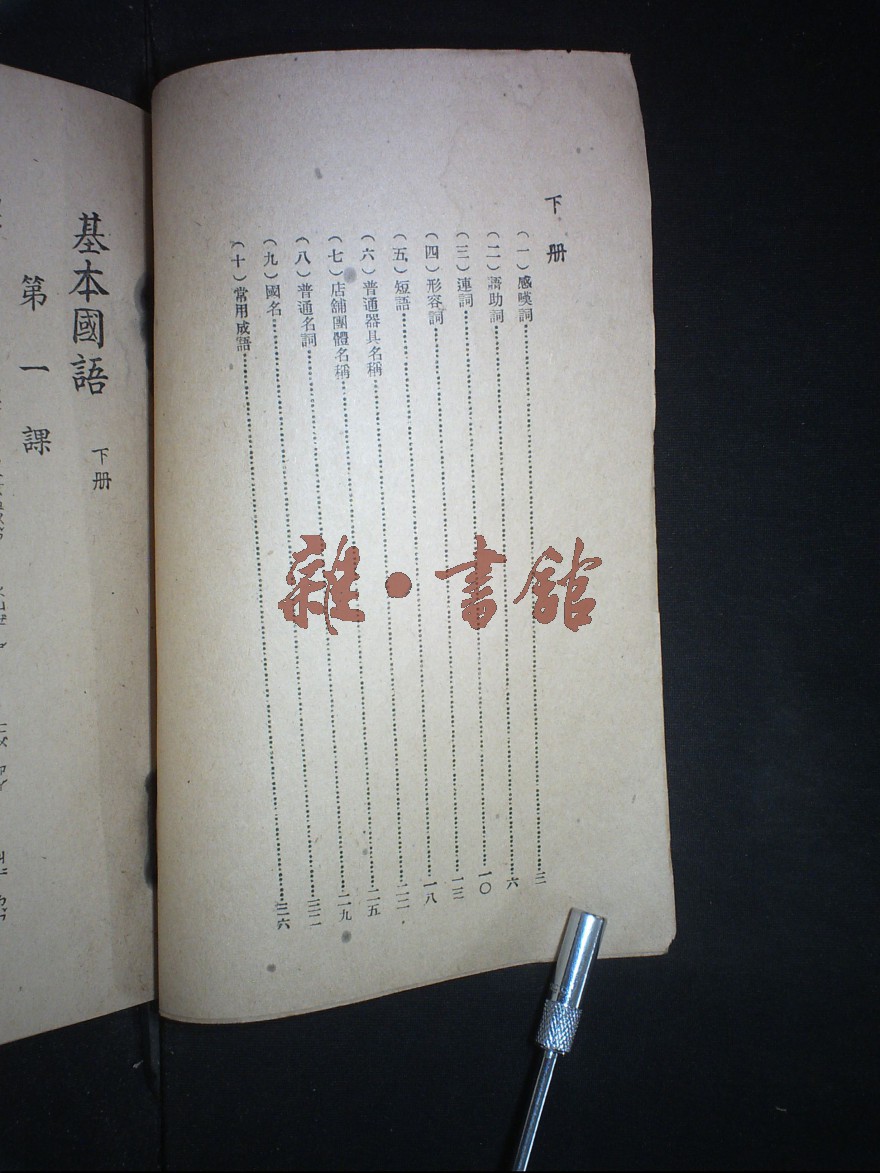 下册
(一)感嘆詞……三
(二)語助詞……六
(三)連詞……一〇
(四)形容詞……一三
(五)短語……一八
(六)普通器具名稱……二二
(七)店舖團體名稱……二五
(八)普通名詞……二九
(九)國名……三二
(十)常用成語……三六
基本國語 下册
第一課
雜·書館